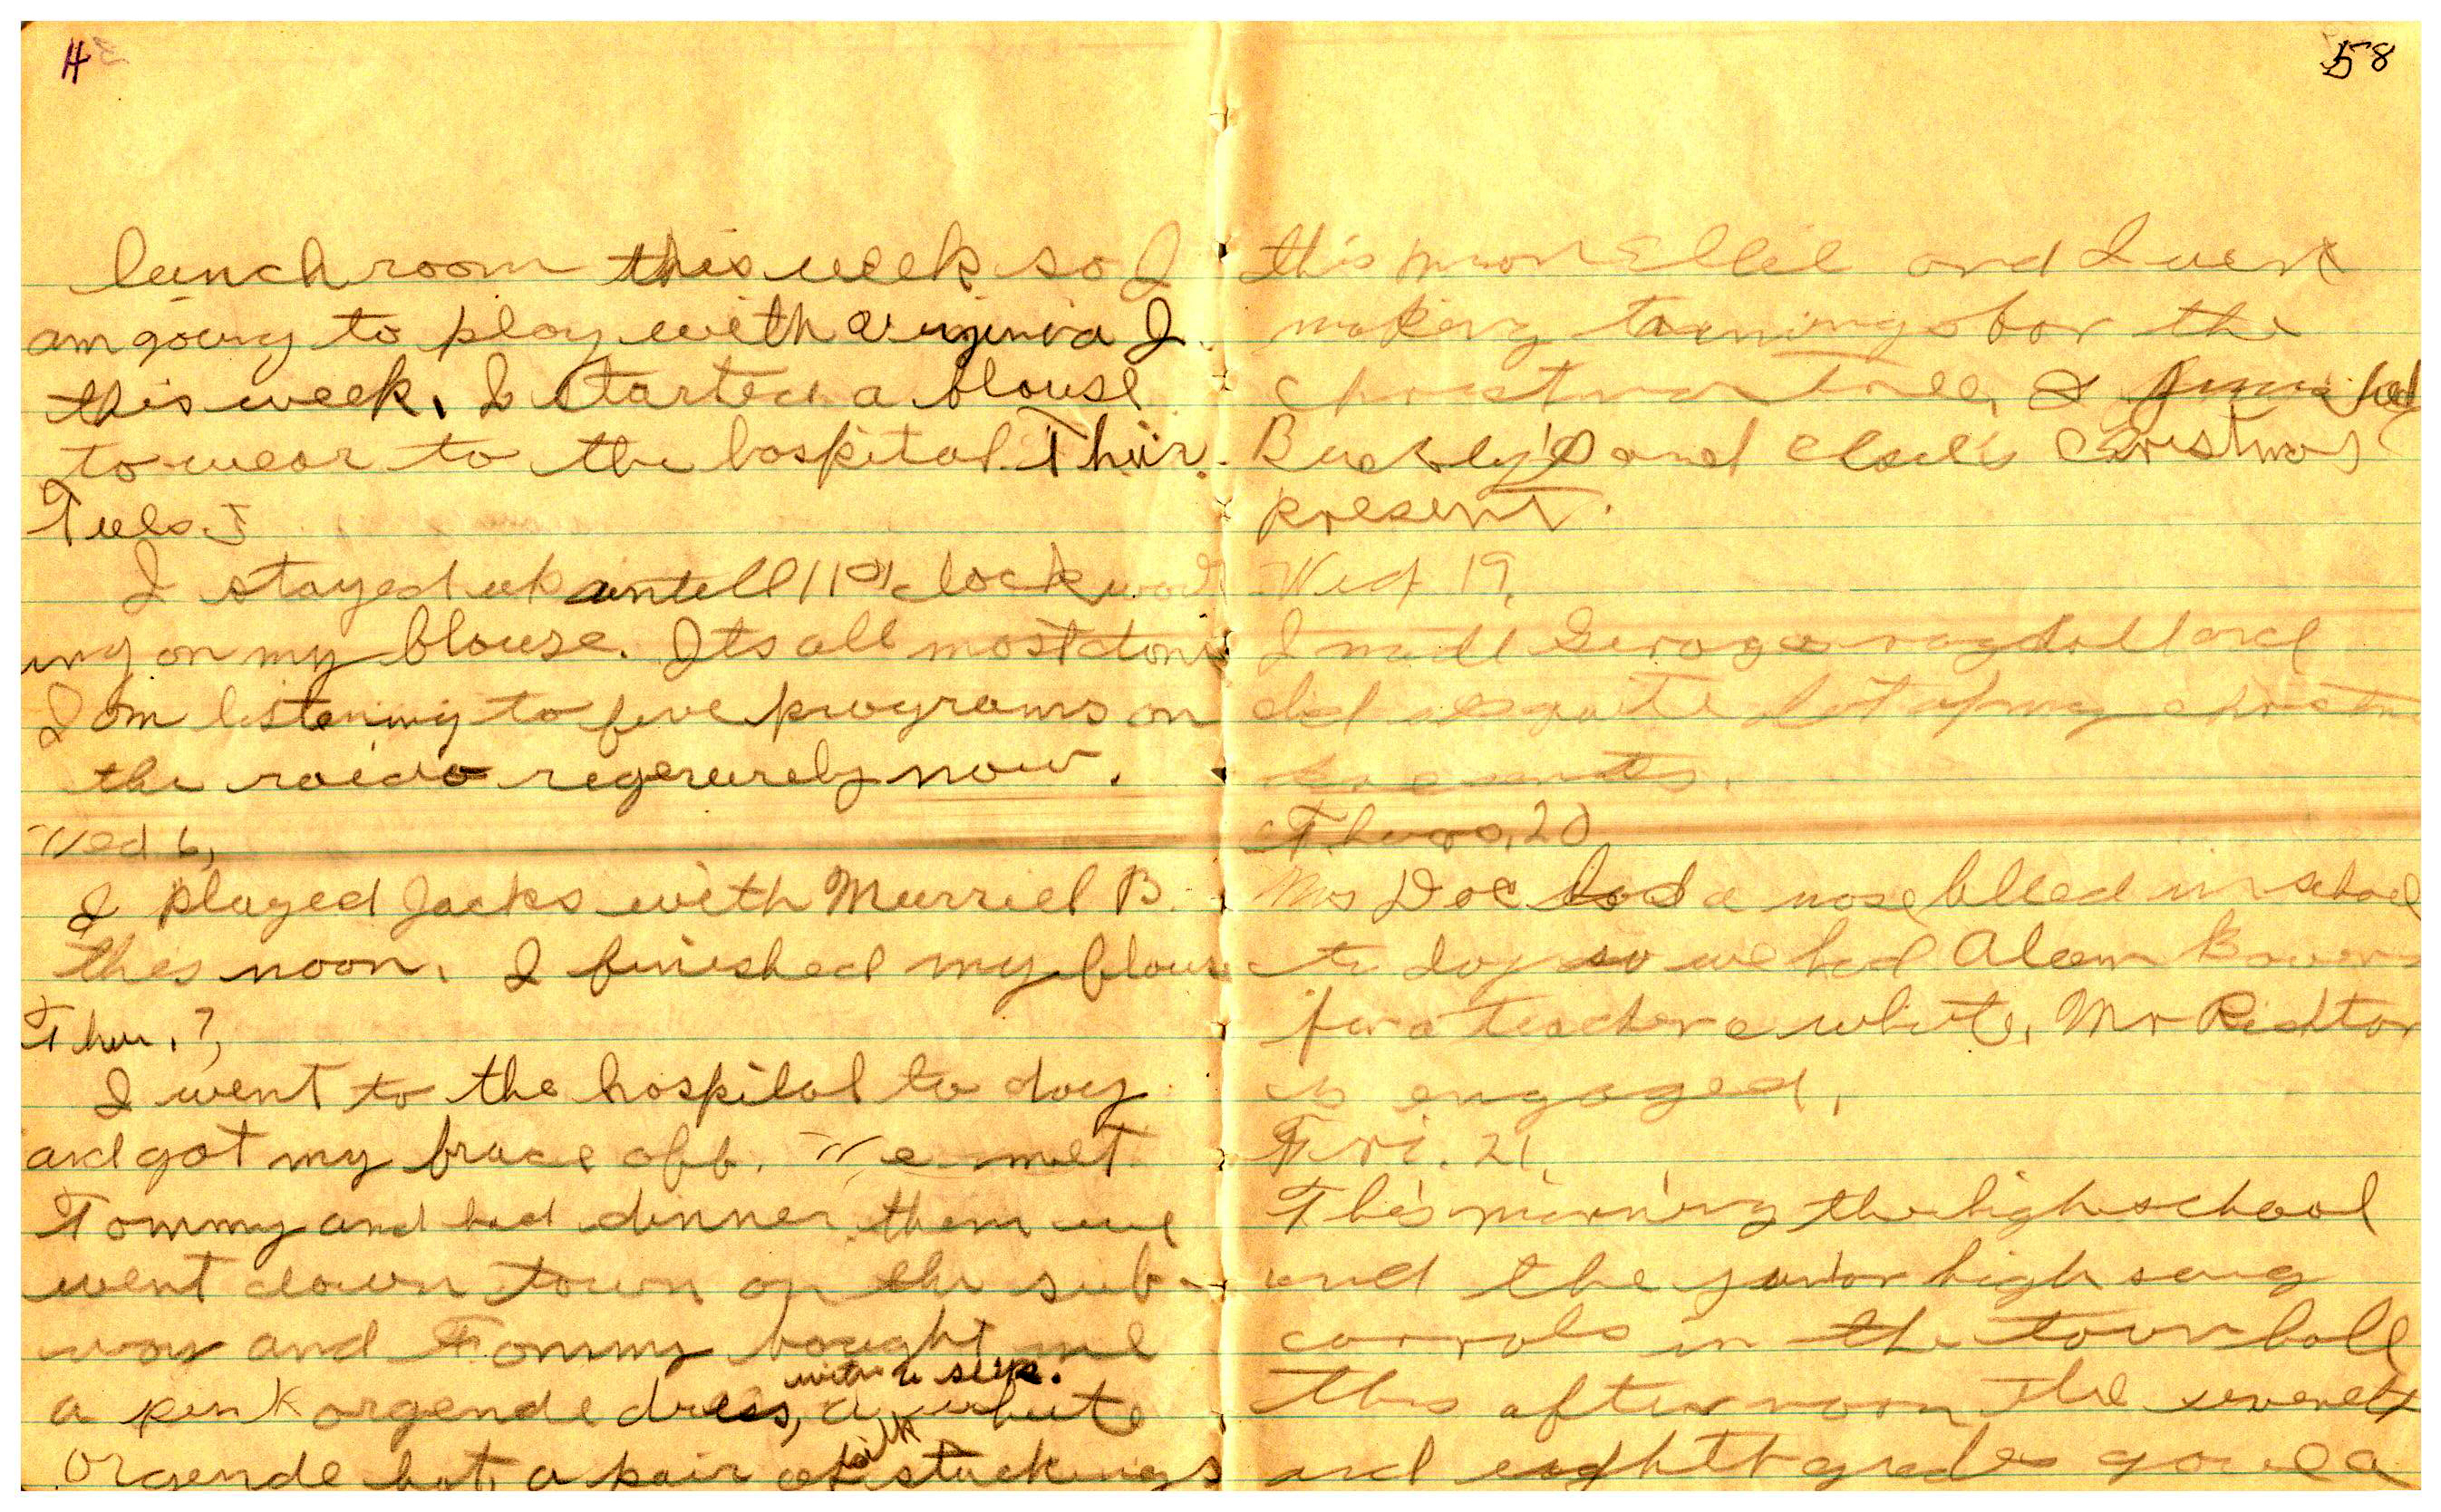 4
lunch room this week so I
am going to play with Virginia I
this week. I started a blouse
to wear to the hospital Thur.
Tues 5
I stayed up untell 11 O'clock
ing on my blouse. Its all most done
I am listening to five programs on
the raido regererely now.
Wed 6,
I played Jacks with Murriel B.
this noon. I finished my blouse
Thur. 7,
I went to the hospital to day
and got my brace off. We met
Tommy and had dinner them we
went down town on the sub-
way and Tommy bought me
a pink orgende dress, with a slip. a white
orgende hat, a pair of silk stockings
58
this noon Ellie and I went
making for the
christmas Tree, I finished
and Elsie's Christmas
present.
Wed 19,
I made a rag doll and
did quite lot of my christmas
Thurs, 20
Mrs Doe had a nose bleed in school
to day so we had Aleen Bower
for a teacher a while, Mr Richtor
is engaged,
Fri. 21,
This morning the high school
and the junior high sang
carrols in the town hall
this afternoon the seventh
and eaghth grades gave a